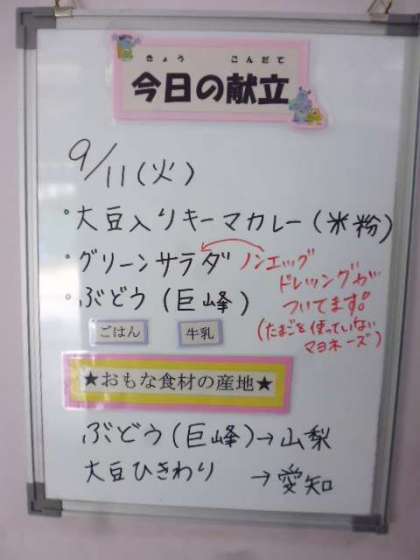 きょう こんだて
今日の献立
9/11(火)
・大豆入りキーマカレー(米粉)
・グリーンサラダ ノンエッグ
ドレッシングが
ついてます。
・ぶどう(巨峰)
(たまごを使っていない
マヨネーズ)
ごはん 牛乳
★おもな食材の産地★
ぶどう(巨峰)→山梨
大豆ひきわり →愛知